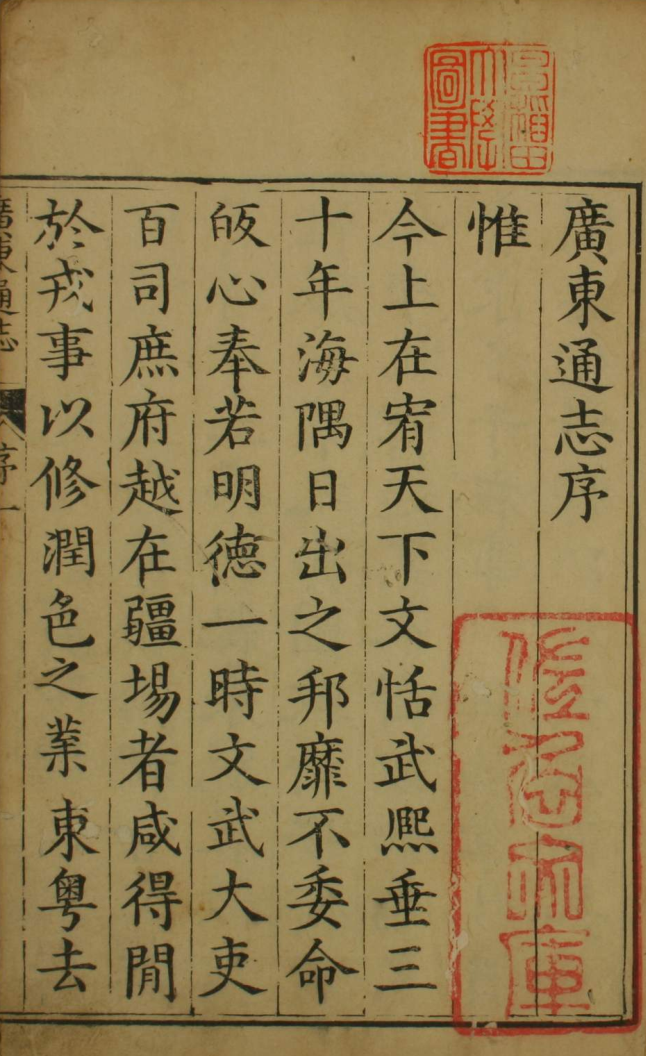 廣東通志序
惟
今上在宥天下文恬武熙垂三
十年海隅日出之邦靡不委命
皈心奉若明德一時文武大吏
百司庶府越在疆埸者咸得閒
於戎事以修潤色之業東粵去
廣東通志
序一
早稲田大學圖書